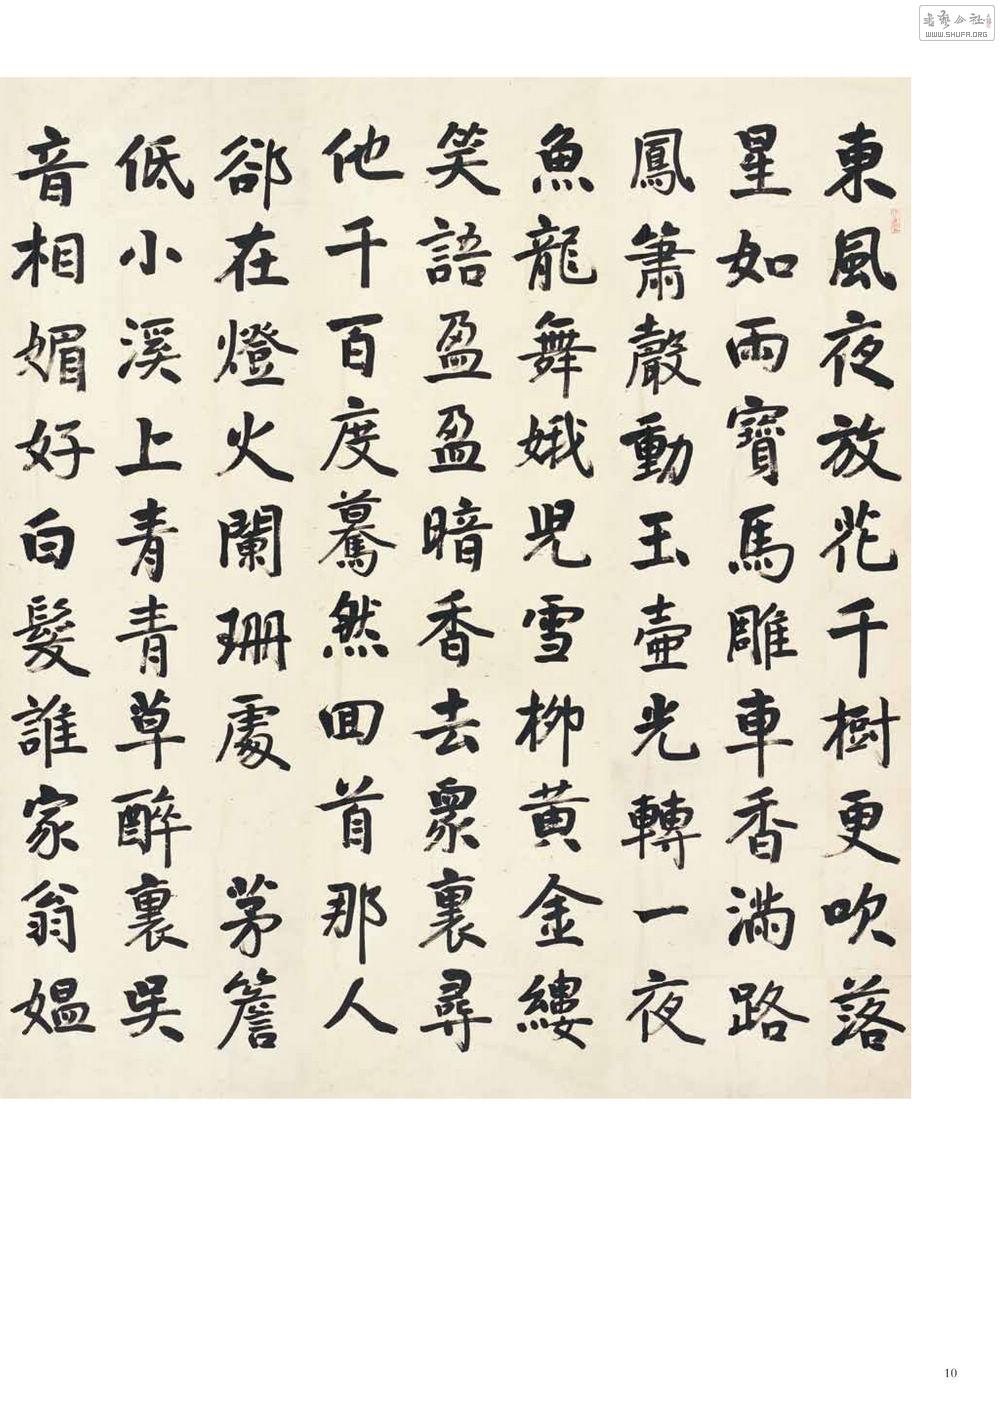 東風夜放花千樹更吹落
星如雨寶馬雕車香滿路
鳳簫聲動玉壺光轉一夜
魚龍舞娥兒雪柳黃金縷
笑語盈盈暗香去眾裏尋
他千百度驀然回首那人
卻在燈火闌珊處 茅簷
低小溪上青青草醉裏吳
音相媚好白髮誰家翁媼
WWW.SHUFA.ORG
10